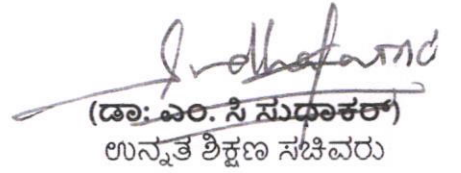 (ಡಾ: ಎಂ. ಸಿ ಸುಧಾಕರ್)
ಉನ್ನತ ಶಿಕ್ಷಣ ಸಚಿವರು